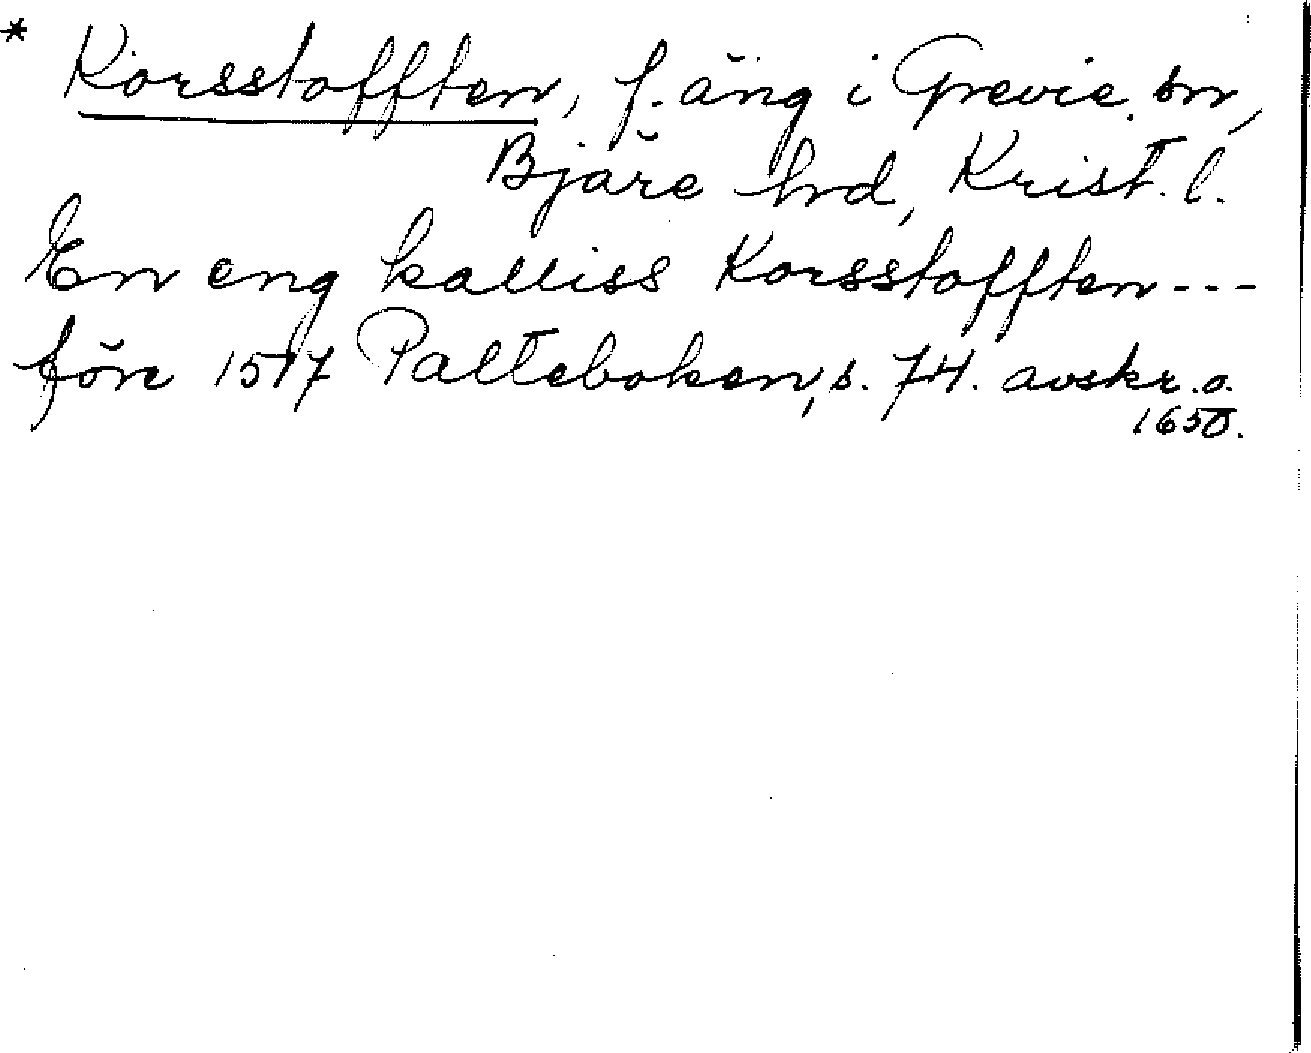 * Korsstofften, f. äng i Grevie sn,
Bjäre hd, Krist. l.
En eng kalliss Korsstofften---
före 1517 Palteboken, s. 74. avskr. o.
1650.